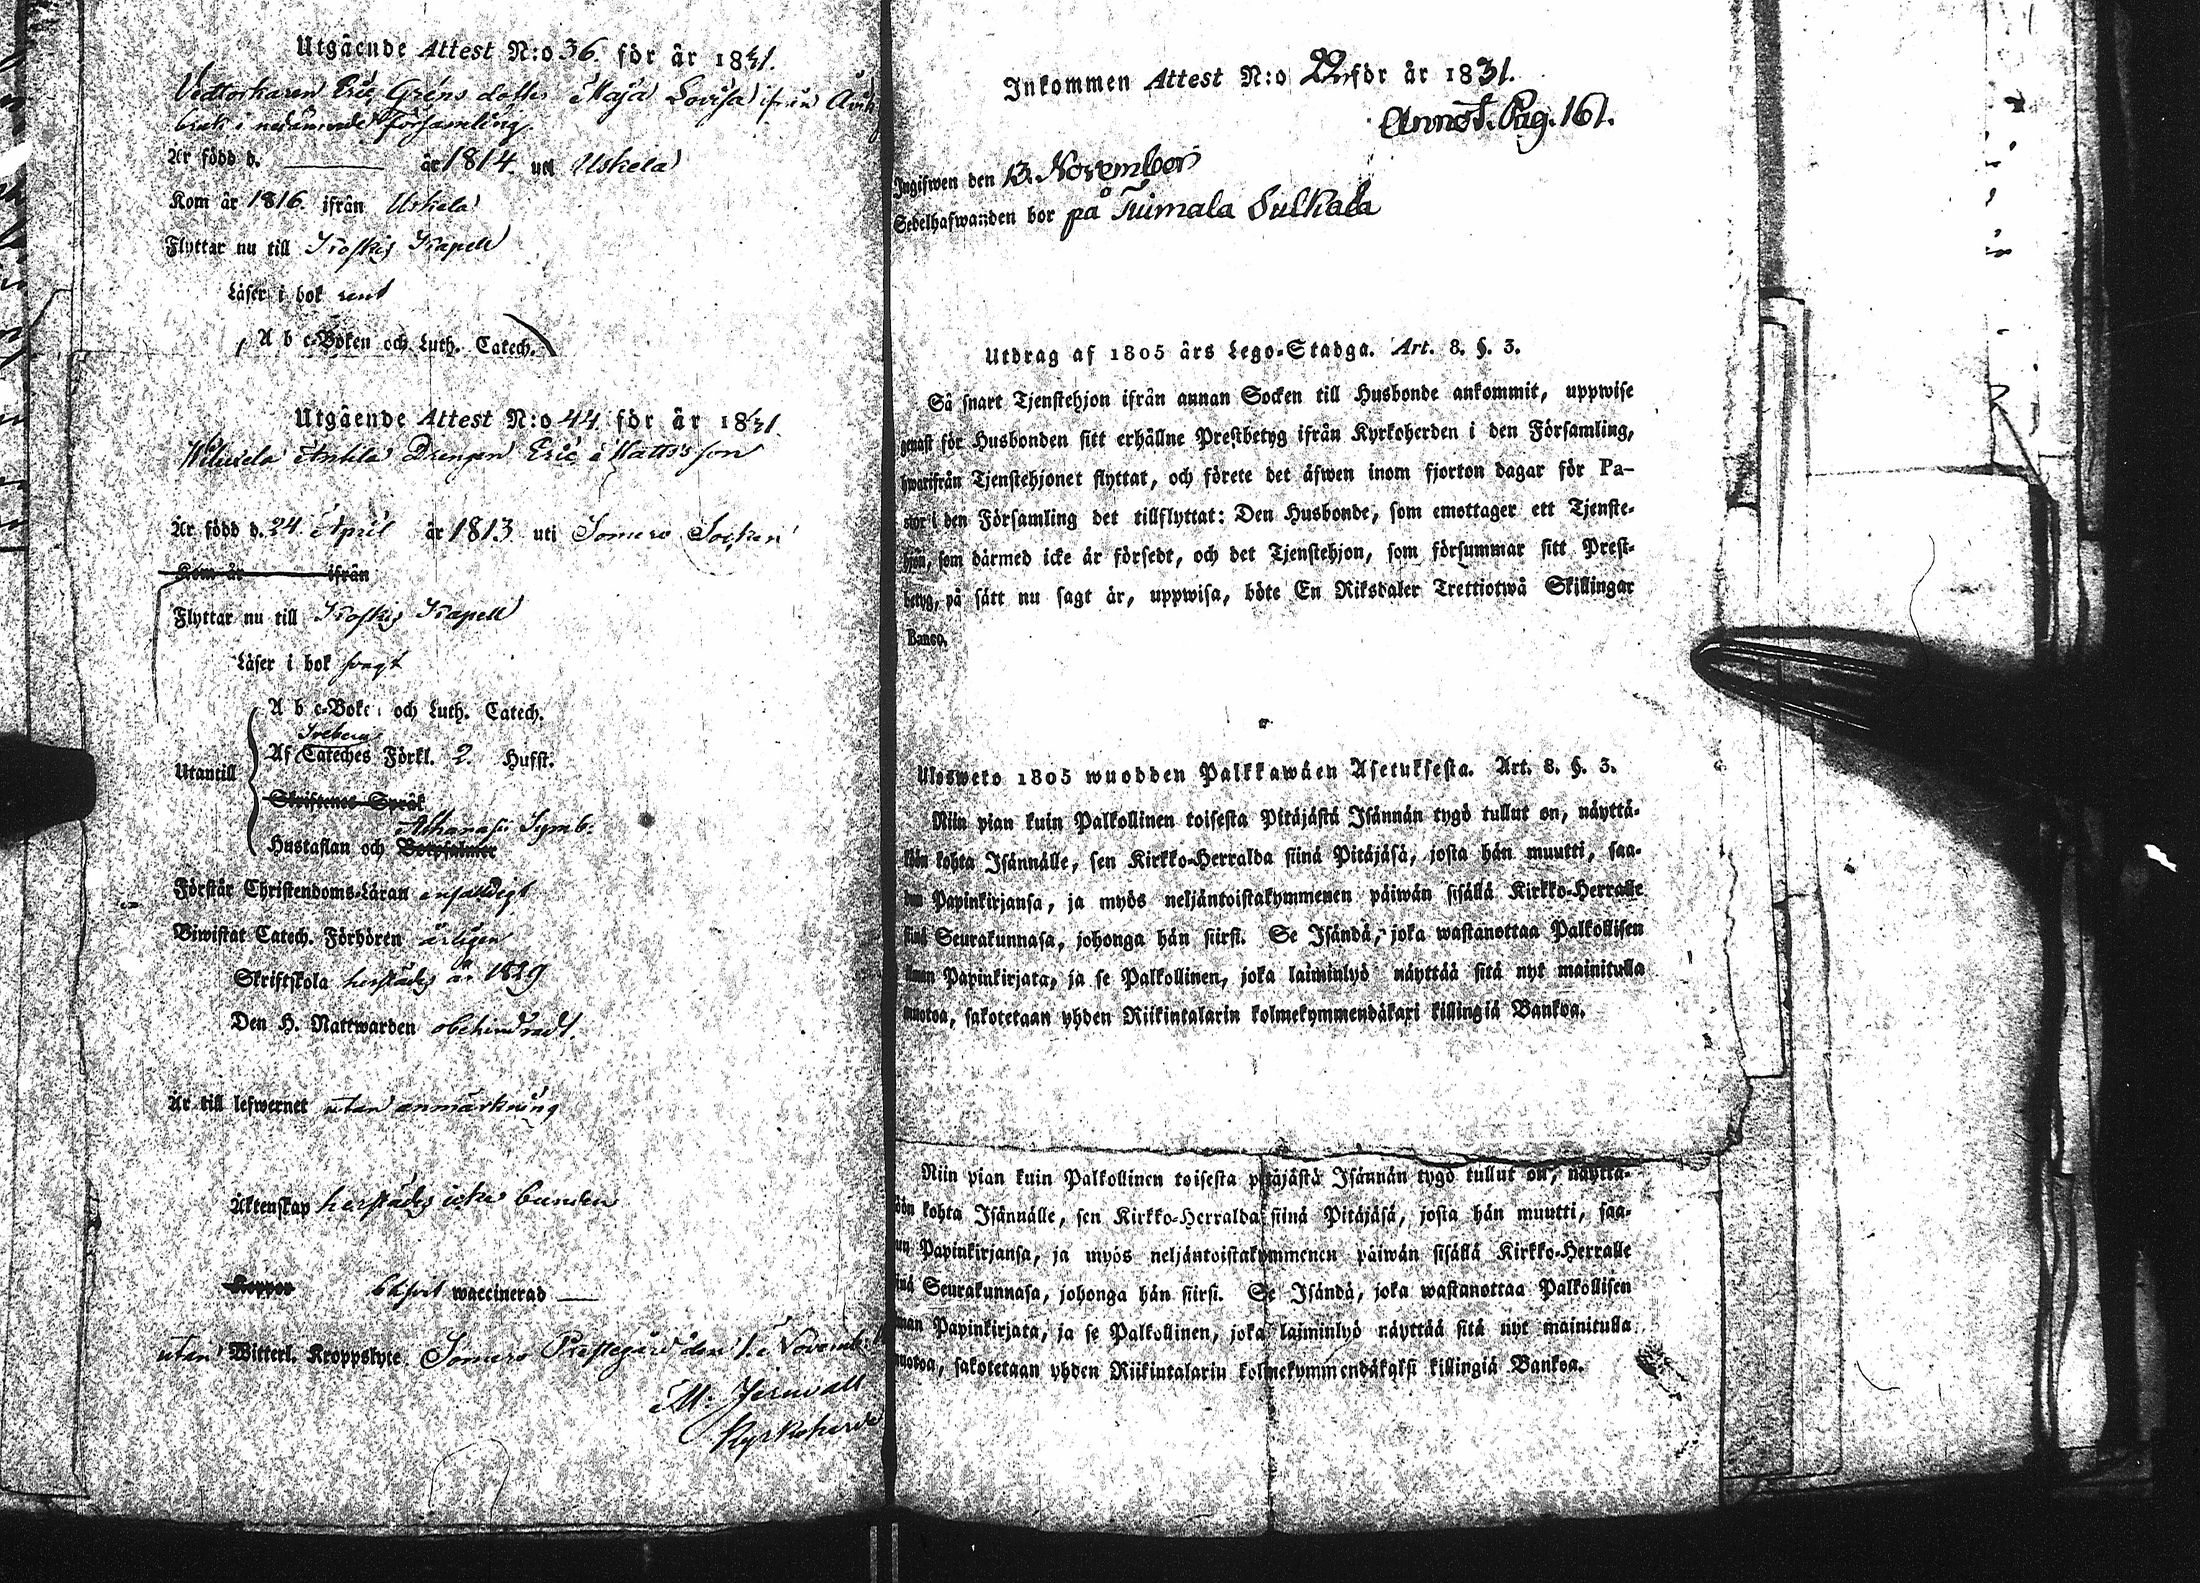 Utgående Attest N:o 36. för år 1831.
Eric Gréns dotter Maja Lovisa ifrån
bruk i församling
Är född d. ——— år 1814. uti Uskela
Kom år 1816. ifrån Uskela
Flyttar nu till Koskis Kapell
Läser i bok rent
A b c-Boken och Luth. Catech.
Utgående Attest N:o 44. för år 1831.
Anttila Drengen Eric Mattsson
Är född d. 24. April år 1813 uti Somero Socken
Kom år ifrån
Flyttar nu till Koskis Kapell
Läser i bok svagt
A b c-Boken och Luth. Catech.
Svebelii
Af Cateches Förkl. 2. Hufst.
Utantill
Skriftenes Språk
Athanasii Symb.
Hustaflan och Botpsalmer
Förstår Christendoms-Läran enfaldigt
Biwistat Catech. Förhören årligen
Skriftskola härstädes år 1829
Den H. Nattwarden obehindradt.
Är till lefwernet utan anmärkning
Äktenskap härstädes icke bunden
Koppor waccinerad —
utan Witterl. Kroppslyte. Somero Prestegård den 1. Novemb.
M.
Kyrkoherde
Inkommen Attest N:o 22 för år 1831.
Annot. Pag. 161.
Ingifwen den 13. November
Sedelhafwanden bor på Tuimala Sulkala
Utdrag af 1805 års Lego-Stadga. Art. 8. §. 3.
Så snart Tjenstehjon ifrån annan Socken till Husbonde ankommit, uppwise
genast för Husbonden sitt erhållne Prestbetyg ifrån Kyrkoherden i den Församling,
hwarifrån Tjenstehjonet flyttat, och förete det äfwen inom fjorton dagar för Pa-
stor i den Församling det tillflyttat: Den Husbonde, som emottager ett Tjenste-
hjon, som därmed icke är försedt, och det Tjenstehjon, som försummar sitt Prest-
betyg, på sätt nu sagt är, uppwisa, böte En Riksdaler Trettiotwå Skillingar
Banco.
Ulosweto 1805 wuodden Palkkawäen Asetuksesta. Art. 8. §. 3.
Niin pian kuin Palkollinen toisesta Pitäjästä Isännän tygö tullut on, näyttä-
köön kohta Isännälle, sen Kirkko-Herralda siinä Pitäjäsä, josta hän muutti, saa-
dun Papinkirjansa, ja myös neljäntoistakymmenen päiwän sisällä Kirkko-Herralle
siinä Seurakunnasa, johonga hän siirsi. Se Isändä, joka wastanottaa Palkollisen
ilman Papinkirjata, ja se Palkollinen, joka laiminlyö näyttää sitä nyt mainitulla
muotoa, sakotetaan yhden Riikintalarin kolmekymmendäkaxi killingiä Bankoa.
Niin pian kuin Palkollinen toisesta pitäjästä Isännän tygö tullut on, näyttä-
öön kohta Isännälle, sen Kirkko-Herralda siinä Pitäjäsä, josta hän muutti, saa-
un Papinkirjansa, ja myös neljäntoistakymmenen päiwän sisällä Kirkko-Herralle
inä Seurakunnasa, johonga hän siirsi. Se Isändä, joka wastanottaa Palkollisen
man Papinkirjata, ja se Palkollinen, joka laiminlyö näyttää sitä nyt mainitulla
uotoa, sakotetaan yhden Riikintalarin kolmekymmendäkaksi killingiä Bankoa.